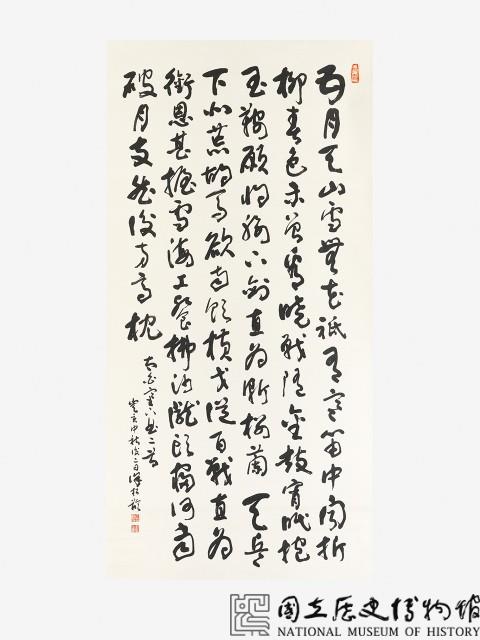 五月天山雪無花祇有寒笛中聞折
柳春色未曾看曉戰隨金鼓宵眠抱
玉鞍願將腰下劍直為斬樓蘭 天兵
下北荒胡馬欲南飲橫戈從百戰直為
銜恩甚握雪海上餐拂沙隴頭寢何當
破月支然後方高枕
太白塞下曲二首
癸亥中秋後二日
國立歷史博物館
NATIONAL MUSEUM OF HISTORY